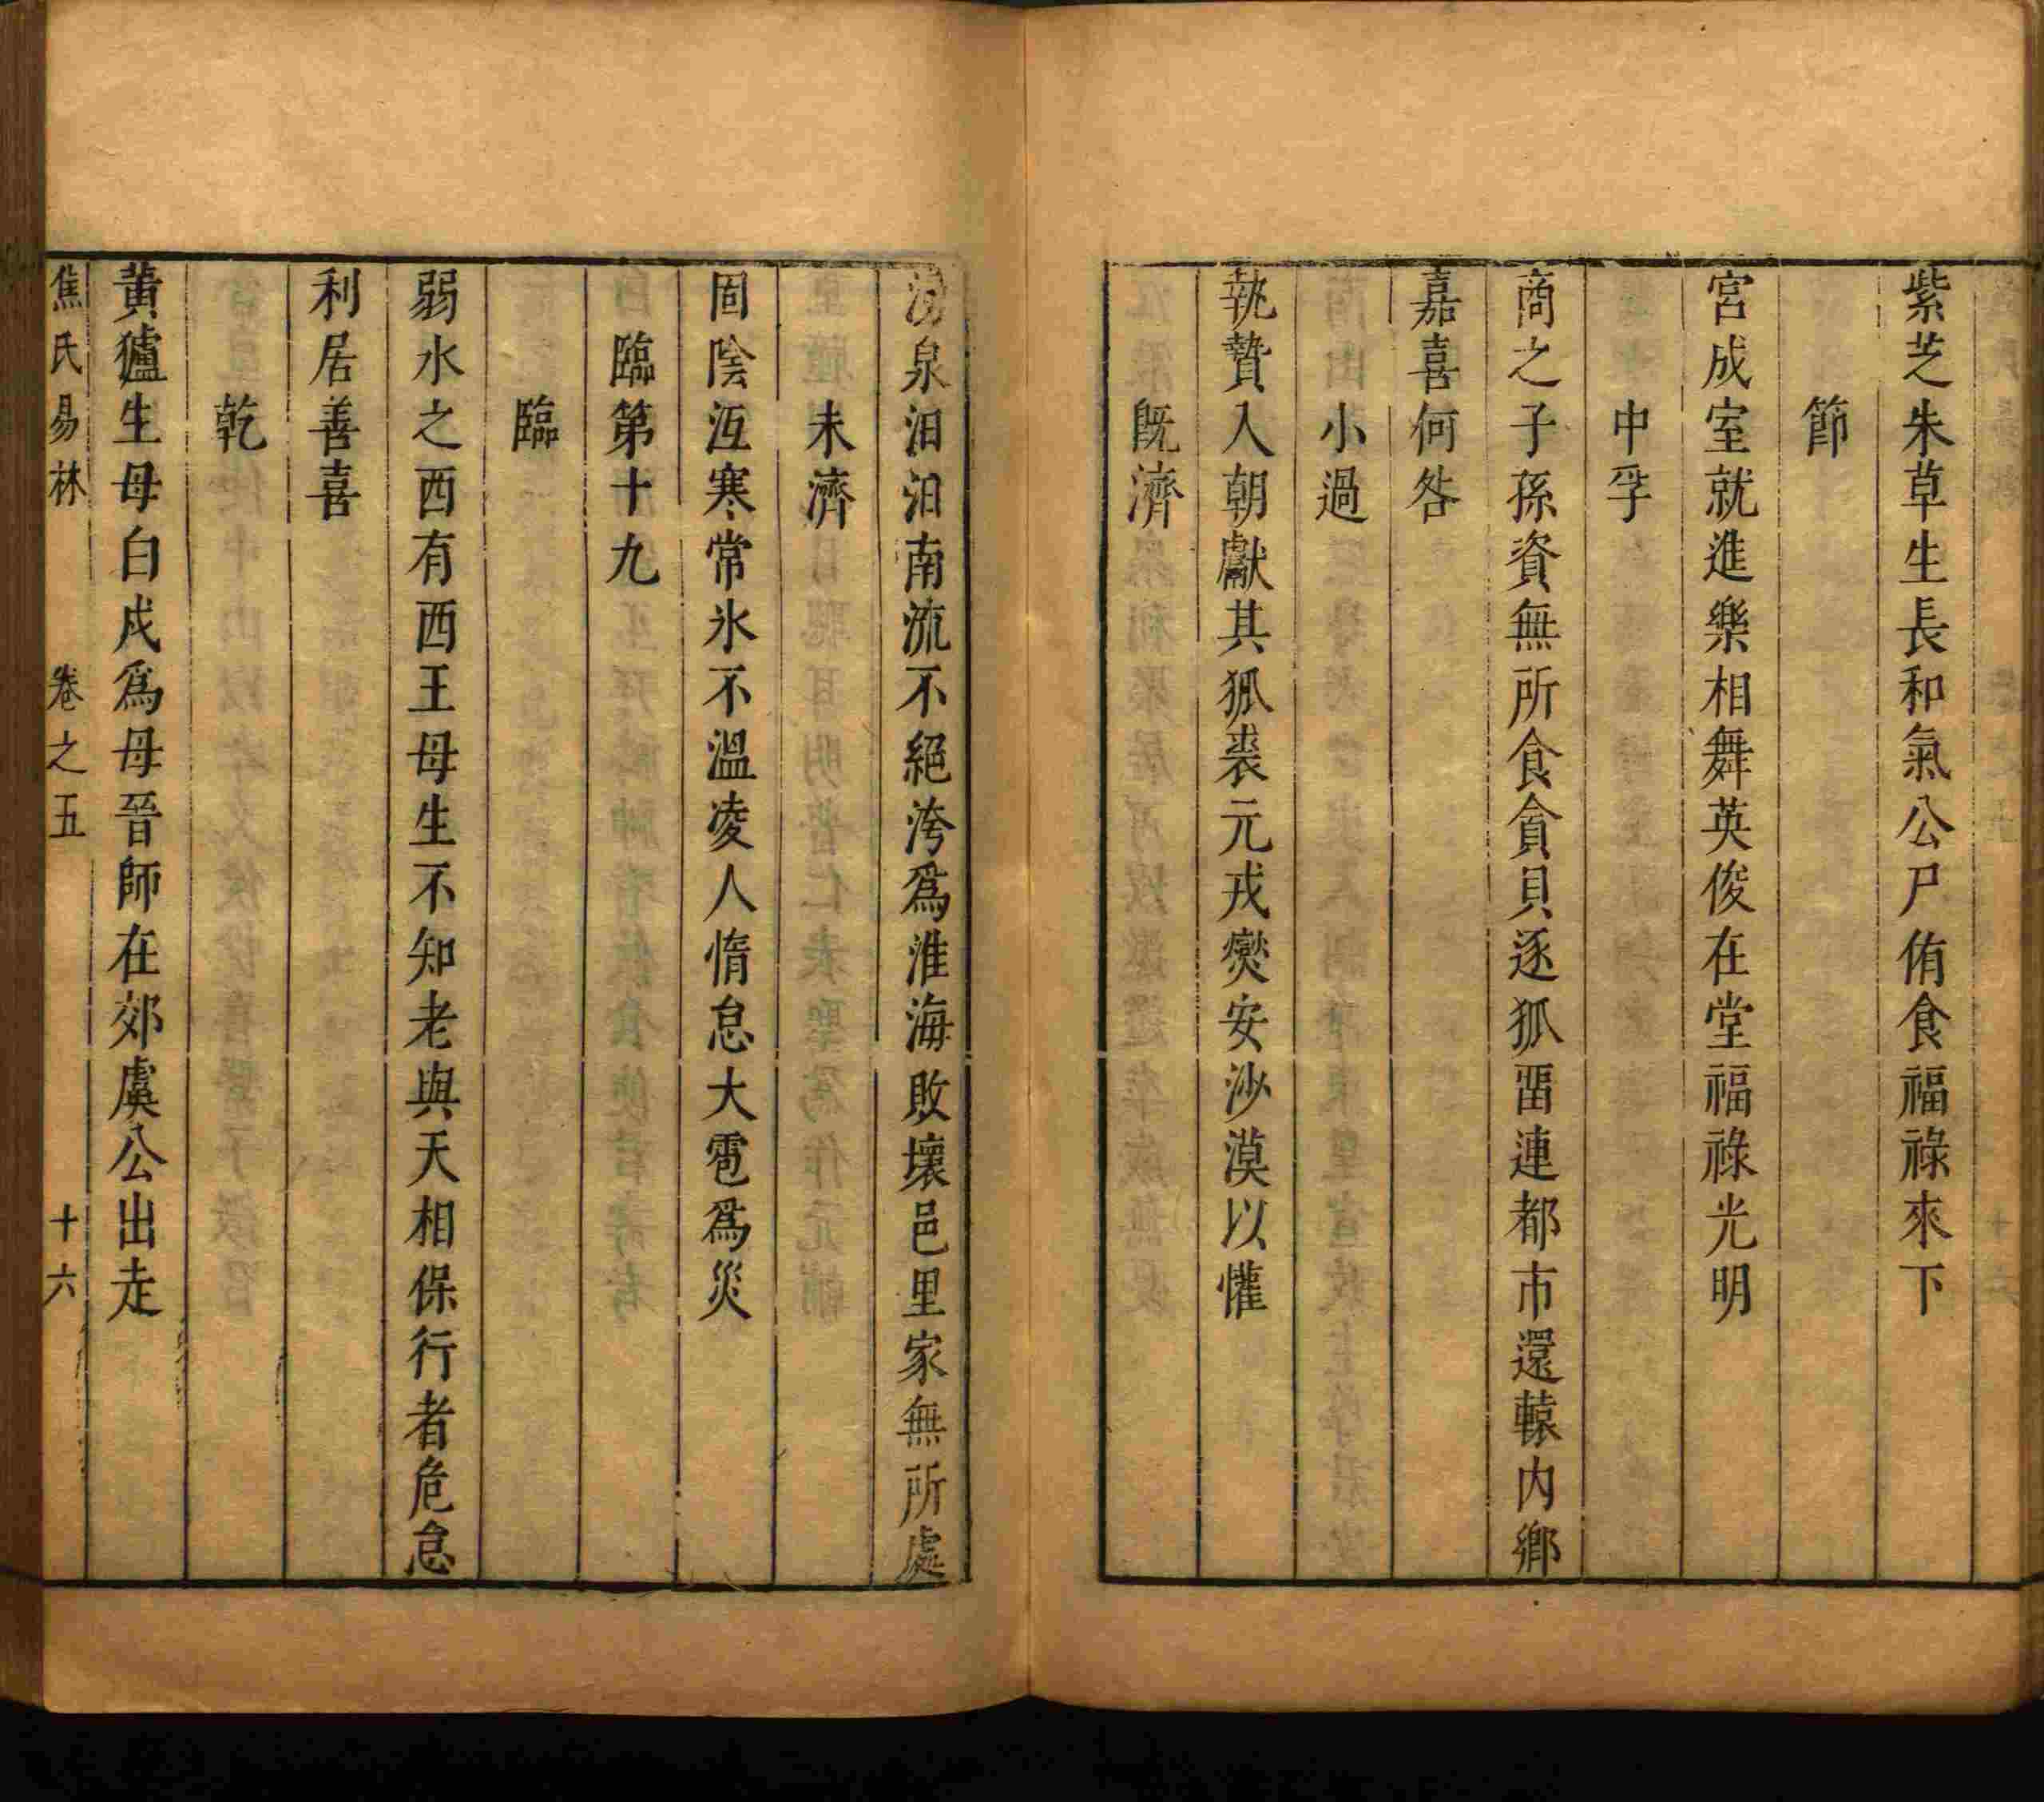 紫芝朱草生長和氣公尸侑食福祿來下
節
宮成室就進樂相舞英俊在堂福祿光明
中孚
商之子孫資無所食貪貝逐狐畱連都市還轅內鄉
嘉喜何咎
小過
執贄入朝獻其狐裘元戎爕安沙漠以懽
旣濟
湧泉汩汩南流不絕洿爲淮海敗壞邑里家無所處
未濟
固陰沍寒常氷不溫凌人惰怠大雹爲災
臨第十九
臨
弱水之西有西王母生不知老與天相保行者危怠
利居善喜
乾
黃獹生母白戍爲母晉師在郊虞公出走
焦氏易林 卷之五 十六